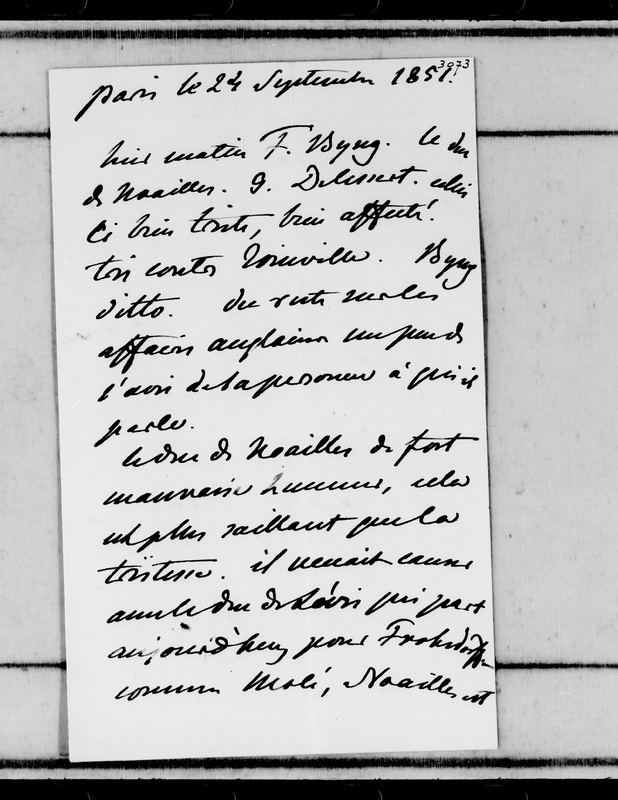 3073
paris le 24 Septembre 1851.
hier matin F. Byng. le duc
de Noailles. G. Delessert. celui
ci bien triste, bien affecté.
très contre Joinville. Byng
ditto. du reste sur les
affaires anglaises un peu de
l'avis de la personne à qui il
parle.
le duc de Noailles de fort
mauvaise humeur, cela
est plus saillant que la
tristesse. il venait causer
avec le duc de Lévis qui part
aujourd'huy pour Frohsdorff
comme Molé, Noailles est